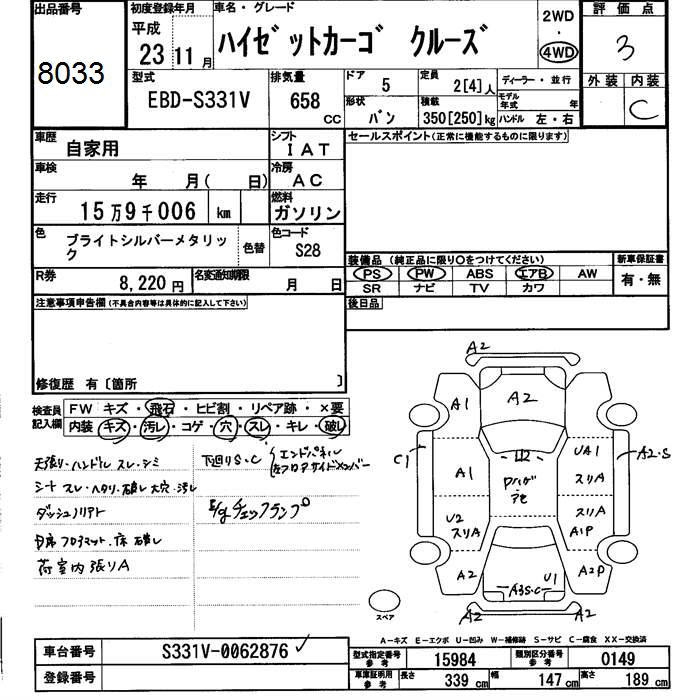 出品番号
8033
初度登録年月
平成
23 11月
車名・グレード
ハイゼットカーゴ クルーズ
2WD
・
4WD
評価点
3
型式
EBD-S331V
排気量
658
cc
ドア
5
定員
2[4]人
ディーラー・並行
形状
バン
積載
350[250]kg
モデル年式 年
ハンドル 左・右
外装
内装
C
車歴
自家用
シフト
IAT
セールスポイント(正常に機能するものに限ります)
車検
年 月( 日)
冷房
AC
走行
15万9千006 km
燃料
ガソリン
色
ブライトシルバーメタリック
色替
色コード
S28
装備品(純正品に限り○をつけてください)
PS PW ABS エアB AW
SR ナビ TV カワ
新車保証書
有・無
R券
8,220円
名変通知期限
月 日
後日品
注意事項申告欄(不具合内容等は具体的に記入して下さい)
修復歴 有〔箇所 〕
検査員記入欄
FW キズ・飛石・ヒビ割・リペア跡・×要
内装・キズ・汚レ・コゲ・穴・スレ・キレ・破レ
天張り・ハンドル スレ・シミ
シート スレ・ヘタリ・破レ 大穴・汚レ
ダッシュ
フロアマット・床 破レ
荷室内張りA
下回りS・C
エンドパネル
フロアサイドメンバー
E/gチェックランプ
A2
A1
A2
C1
A1
UA1
スリA
A2・S
U2
スリA
スリA
A1P
A2
A3S・C
U1
A2P
A2
A2
スペア
A-キズ E-エクボ U-凹み W-補修跡 S-サビ C-腐食 XX-交換済
車台番号
S331V-0062876
登録番号
型式指定番号
参考
15984
類別区分番号
参考
0149
車庫証明用
参考
長さ
339 cm
幅
147 cm
高さ
189 cm